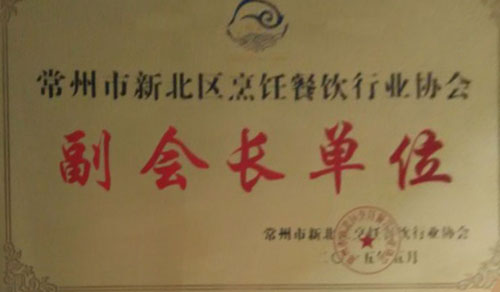 常州市新北区烹饪餐饮行业协会
副会长单位
常州市新北区烹饪餐饮行业协会
二〇一五年五月